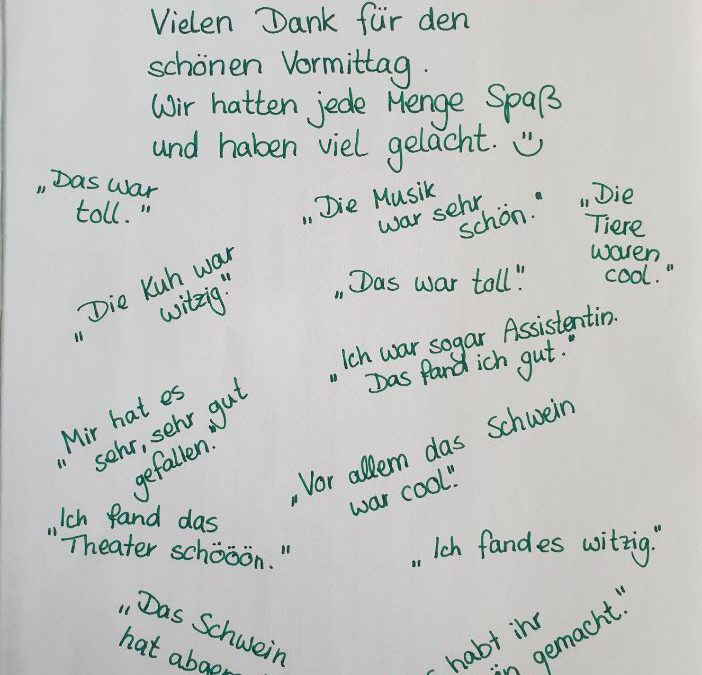 Vielen Dank für den
schönen Vormittag.
Wir hatten jede Menge Spaß
und haben viel gelacht. :)
„Das war
toll."
„Die Musik
war sehr
schön."
„Die
Tiere
waren
cool."
„Die Kuh war
witzig."
„Das war toll".
„Ich war sogar Assistentin.
Das fand ich gut."
„Mir hat es
sehr, sehr gut
gefallen."
„Vor allem das Schwein
war cool".
„Ich fand das
Theater schööön."
„Ich fand es witzig."
„Das Schwein
hat
habt ihr
gemacht."